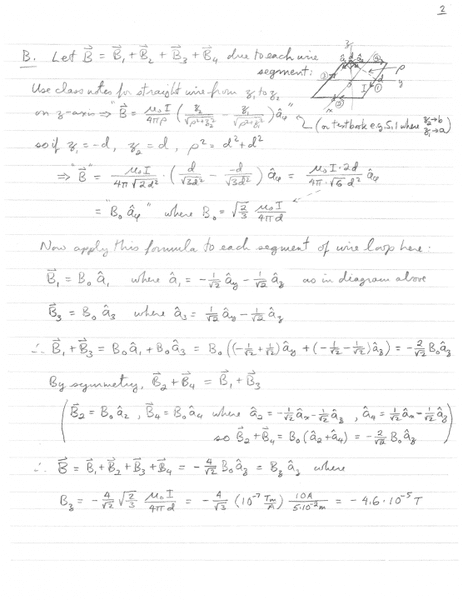 2
B. Let B⃗ = B⃗₁ + B⃗₂ + B⃗₃ + B⃗₄ due to each wire
segment:
Use class notes for straight wire from z₁ to z₂
on z-axis ⇒ "B⃗ = μ₀I/4πρ (z₂/√(ρ²+z₂²) − z₁/√(ρ²+z₁²)) â"
(or textbook eq. 5.1 where z₂→b z₁→a)
so if z₁ = -d, z₂ = d, ρ² = d² + d²
⇒ "B⃗" = μ₀I/(4π√2d²) · (d/√3d² − -d/√3d²) â = μ₀I·2d/(4π·√6 d²) â
= "B₀ â" where B₀ = √(2/3) μ₀I/4πd
Now apply this formula to each segment of wire loop here:
B⃗₁ = B₀ â₁ where â₁ = -1/√2 â_y - 1/√2 â_z as in diagram above
B⃗₃ = B₀ â₃ where â₃ = 1/√2 â_y - 1/√2 â_z
∴ B⃗₁ + B⃗₃ = B₀â₁ + B₀â₃ = B₀((-1/√2 + 1/√2)â_y + (-1/√2 - 1/√2)â_z) = -2/√2 B₀ â_z
By symmetry, B⃗₂ + B⃗₄ = B⃗₁ + B⃗₃
(B⃗₂ = B₀â₂, B⃗₄ = B₀â₄ where â₂ = -1/√2 â_x - 1/√2 â_z, â₄ = 1/√2 â_x - 1/√2 â_z
so B⃗₂ + B⃗₄ = B₀(â₂ + â₄) = -2/√2 B₀ â_z)
∴ B⃗ = B⃗₁ + B⃗₂ + B⃗₃ + B⃗₄ = -4/√2 B₀ â_z = B_z â_z where
B_z = -4/√2 √(2/3) μ₀I/4πd = -4/√3 (10⁻⁷ Tm/A) 10A/(5·10⁻²m) = -4.6·10⁻⁵ T